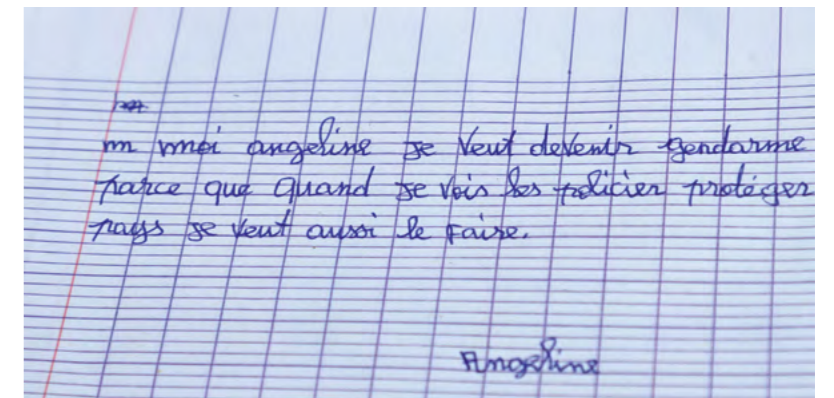 m moi angeline je veut devenir gendarme
parce que quand je vois les policier protéger
pays je veut aussi le faire.
Angeline